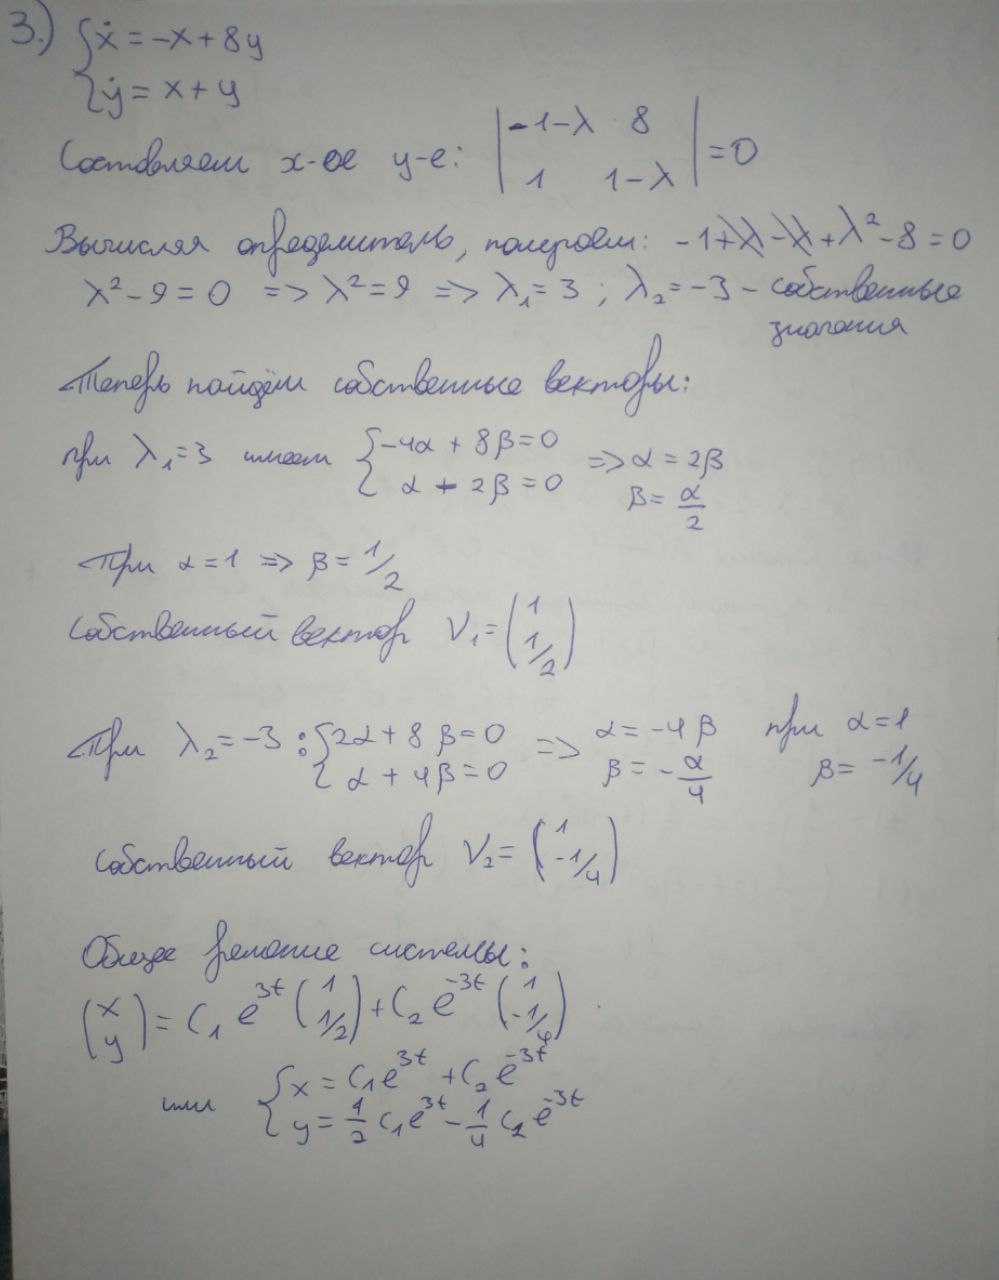 3.) { ẋ = -x + 8y
{ ẏ = x + y
Составляем х-ое у-е: | -1-λ 8 |
| 1 1-λ | = 0
Вычисляя определитель, получаем: -1+λ-λ+λ²-8=0
λ²-9=0 => λ²=9 => λ₁=3; λ₂=-3 - собственные
значения
Теперь найдём собственные векторы:
при λ₁=3 имеем { -4α + 8β = 0
{ α - 2β = 0 => α = 2β
β = α/2
При α=1 => β = 1/2
Собственный вектор V₁ = (1
1/2)
При λ₂=-3 : { 2α + 8β = 0
{ α + 4β = 0 => α = -4β
β = -α/4
при α=1
β = -1/4
Собственный вектор V₂ = (1
-1/4)
Общее решение системы:
(x
y) = C₁ e^3t (1
1/2) + C₂ e^-3t (1
-1/4)
или { x = C₁e^3t + C₂e^-3t
{ y = 1/2 C₁e^3t - 1/4 C₂e^-3t